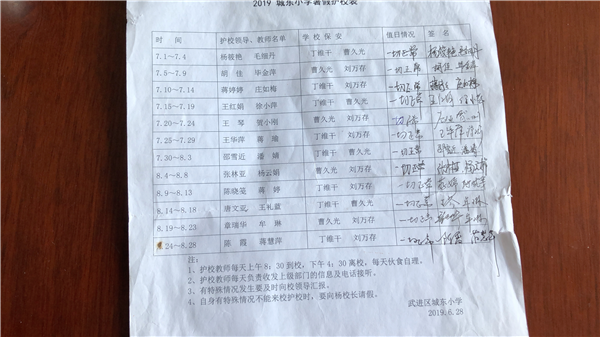 2019 城东小学暑假护校表
时 间 护校领导、教师名单 学 校 保 安 值日情况 签 名
7.1~7.4 杨敏艳 毛细丹 丁维干 曹久光 一切正常
7.5~7.9 胡 佳 毕金萍 曹久光 刘万存 一切正常 胡佳
7.10~7.14 蒋婷婷 庄如梅 丁维干 刘万存 一切正常
7.15~7.19 王红娟 徐小萍 丁维干 曹久光 一切正常
7.20~7.24 王 琴 贺小刚 曹久光 刘万存
7.25~7.29 王华萍 蒋 瑜 丁维干 刘万存 一切正常
7.30~8.3 邵雪近 潘 靖 丁维干 曹久光 一切正常
8.4~8.8 张林亚 杨云娟 曹久光 刘万存 一切正常
8.9~8.13 陈晓英 蒋 婷 丁维干 刘万存 一切正常
8.14~8.18 唐文亚 王礼益 丁维干 曹久光 一切正常
8.19~8.23 章瑞华 牟 琳 曹久光 刘万存 一切正常
8.24~8.28 陈 霞 蒋慧萍 丁维干 刘万存 一切正常
注:
1、护校教师每天上午8:30到校,下午4:30离校,每天伙食自理。
2、护校教师每天负责收发上级部门的信息及电话接听。
3、有特殊情况发生要及时向校领导汇报。
4、自身有特殊情况不能来校护校时,要向杨校长请假。
武进区城东小学
2019.6.28